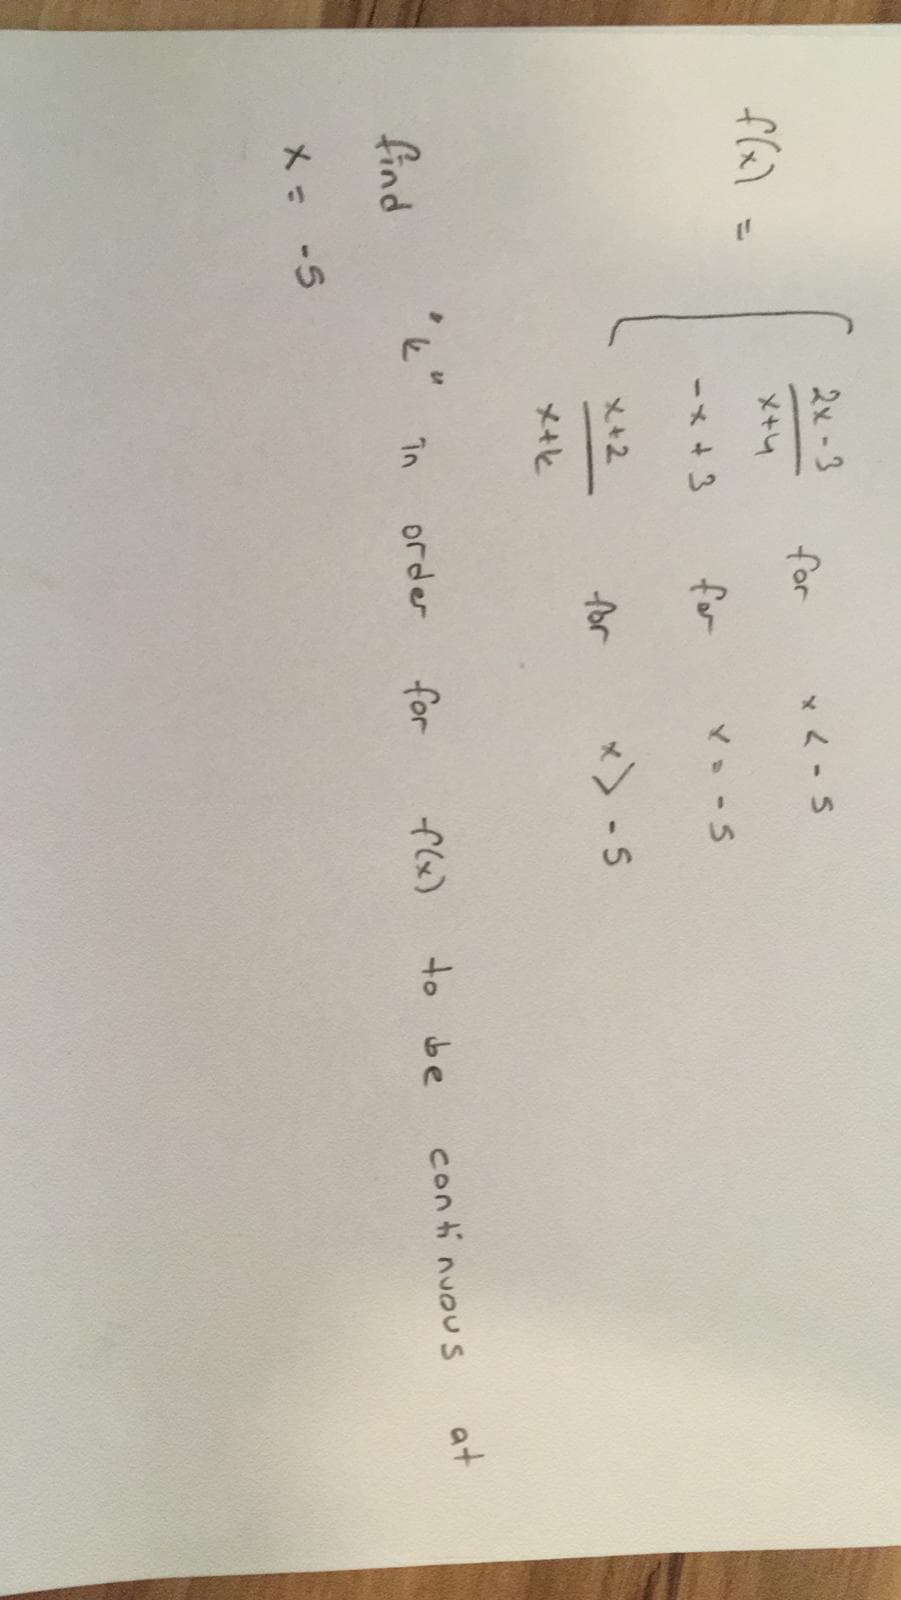 f(x) = { 2x-3 / x+4 for x < -5
-x + 3 for x = -5
x+2 / x+k for x > -5
find "k" in order for f(x) to be continuous at
x = -5